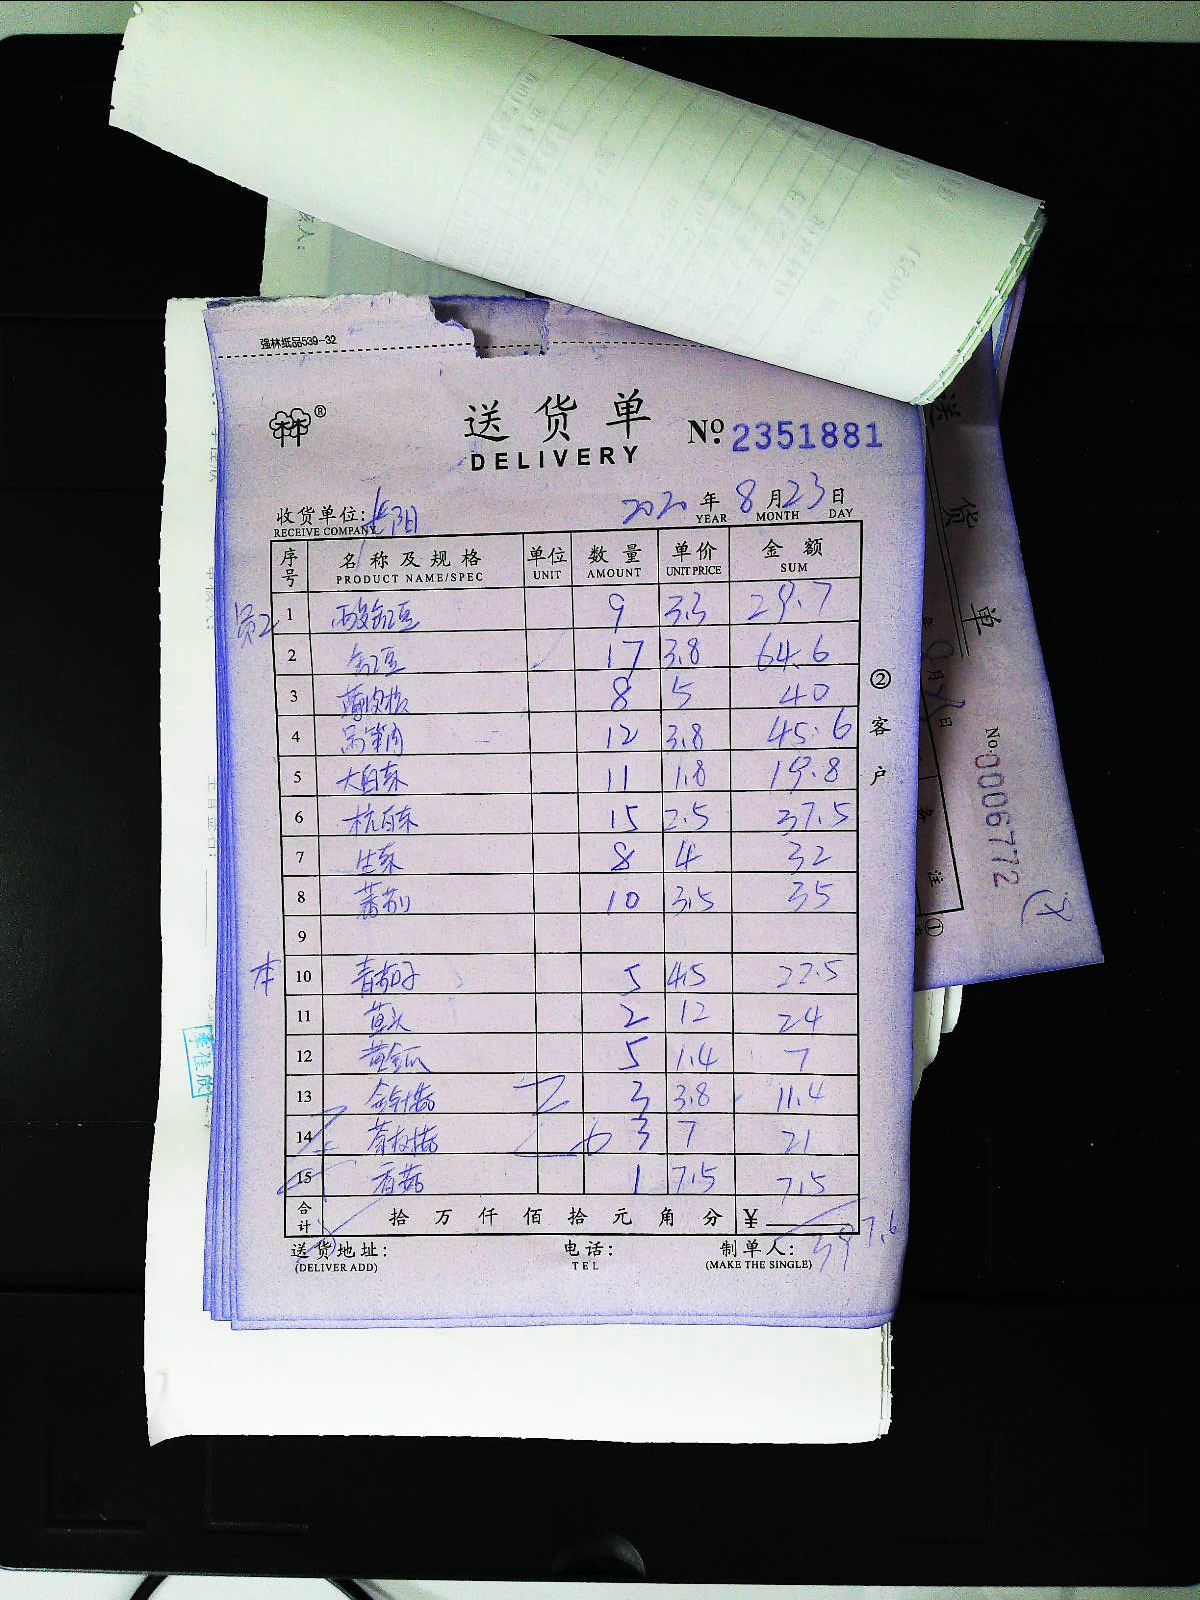 强林纸品539-32
送货单
DELIVERY
No. 2351881
收货单位:
RECEIVE COMPANY
2020 年 8 月 23 日
YEAR MONTH DAY
序号 名称及规格 单位 数量 单价 金额
PRODUCT NAME/SPEC UNIT AMOUNT UNIT PRICE SUM
员工 1 酸缸豆 9 3.3 29.7
2 缸豆 17 3.8 64.6
3 8 5 40
4 12 3.8 45.6
5 大白菜 11 1.8 19.8
6 杭白菜 15 2.5 37.5
7 生菜 8 4 32
8 蕃茄 10 3.5 35
9
本 10 青茄子 5 4.5 22.5
11 2 12 24
12 黄金瓜 5 1.4 7
13 金针菇 3 3.8 11.4
14 3 7 21
15 香菇 1 7.5 7.5
合计 拾 万 仟 佰 拾 元 角 分 ¥
397.6
送货地址: 电话: 制单人:
(DELIVER ADD) TEL (MAKE THE SINGLE)
②客户
送货单
No.0006772
注
①
李佳欣